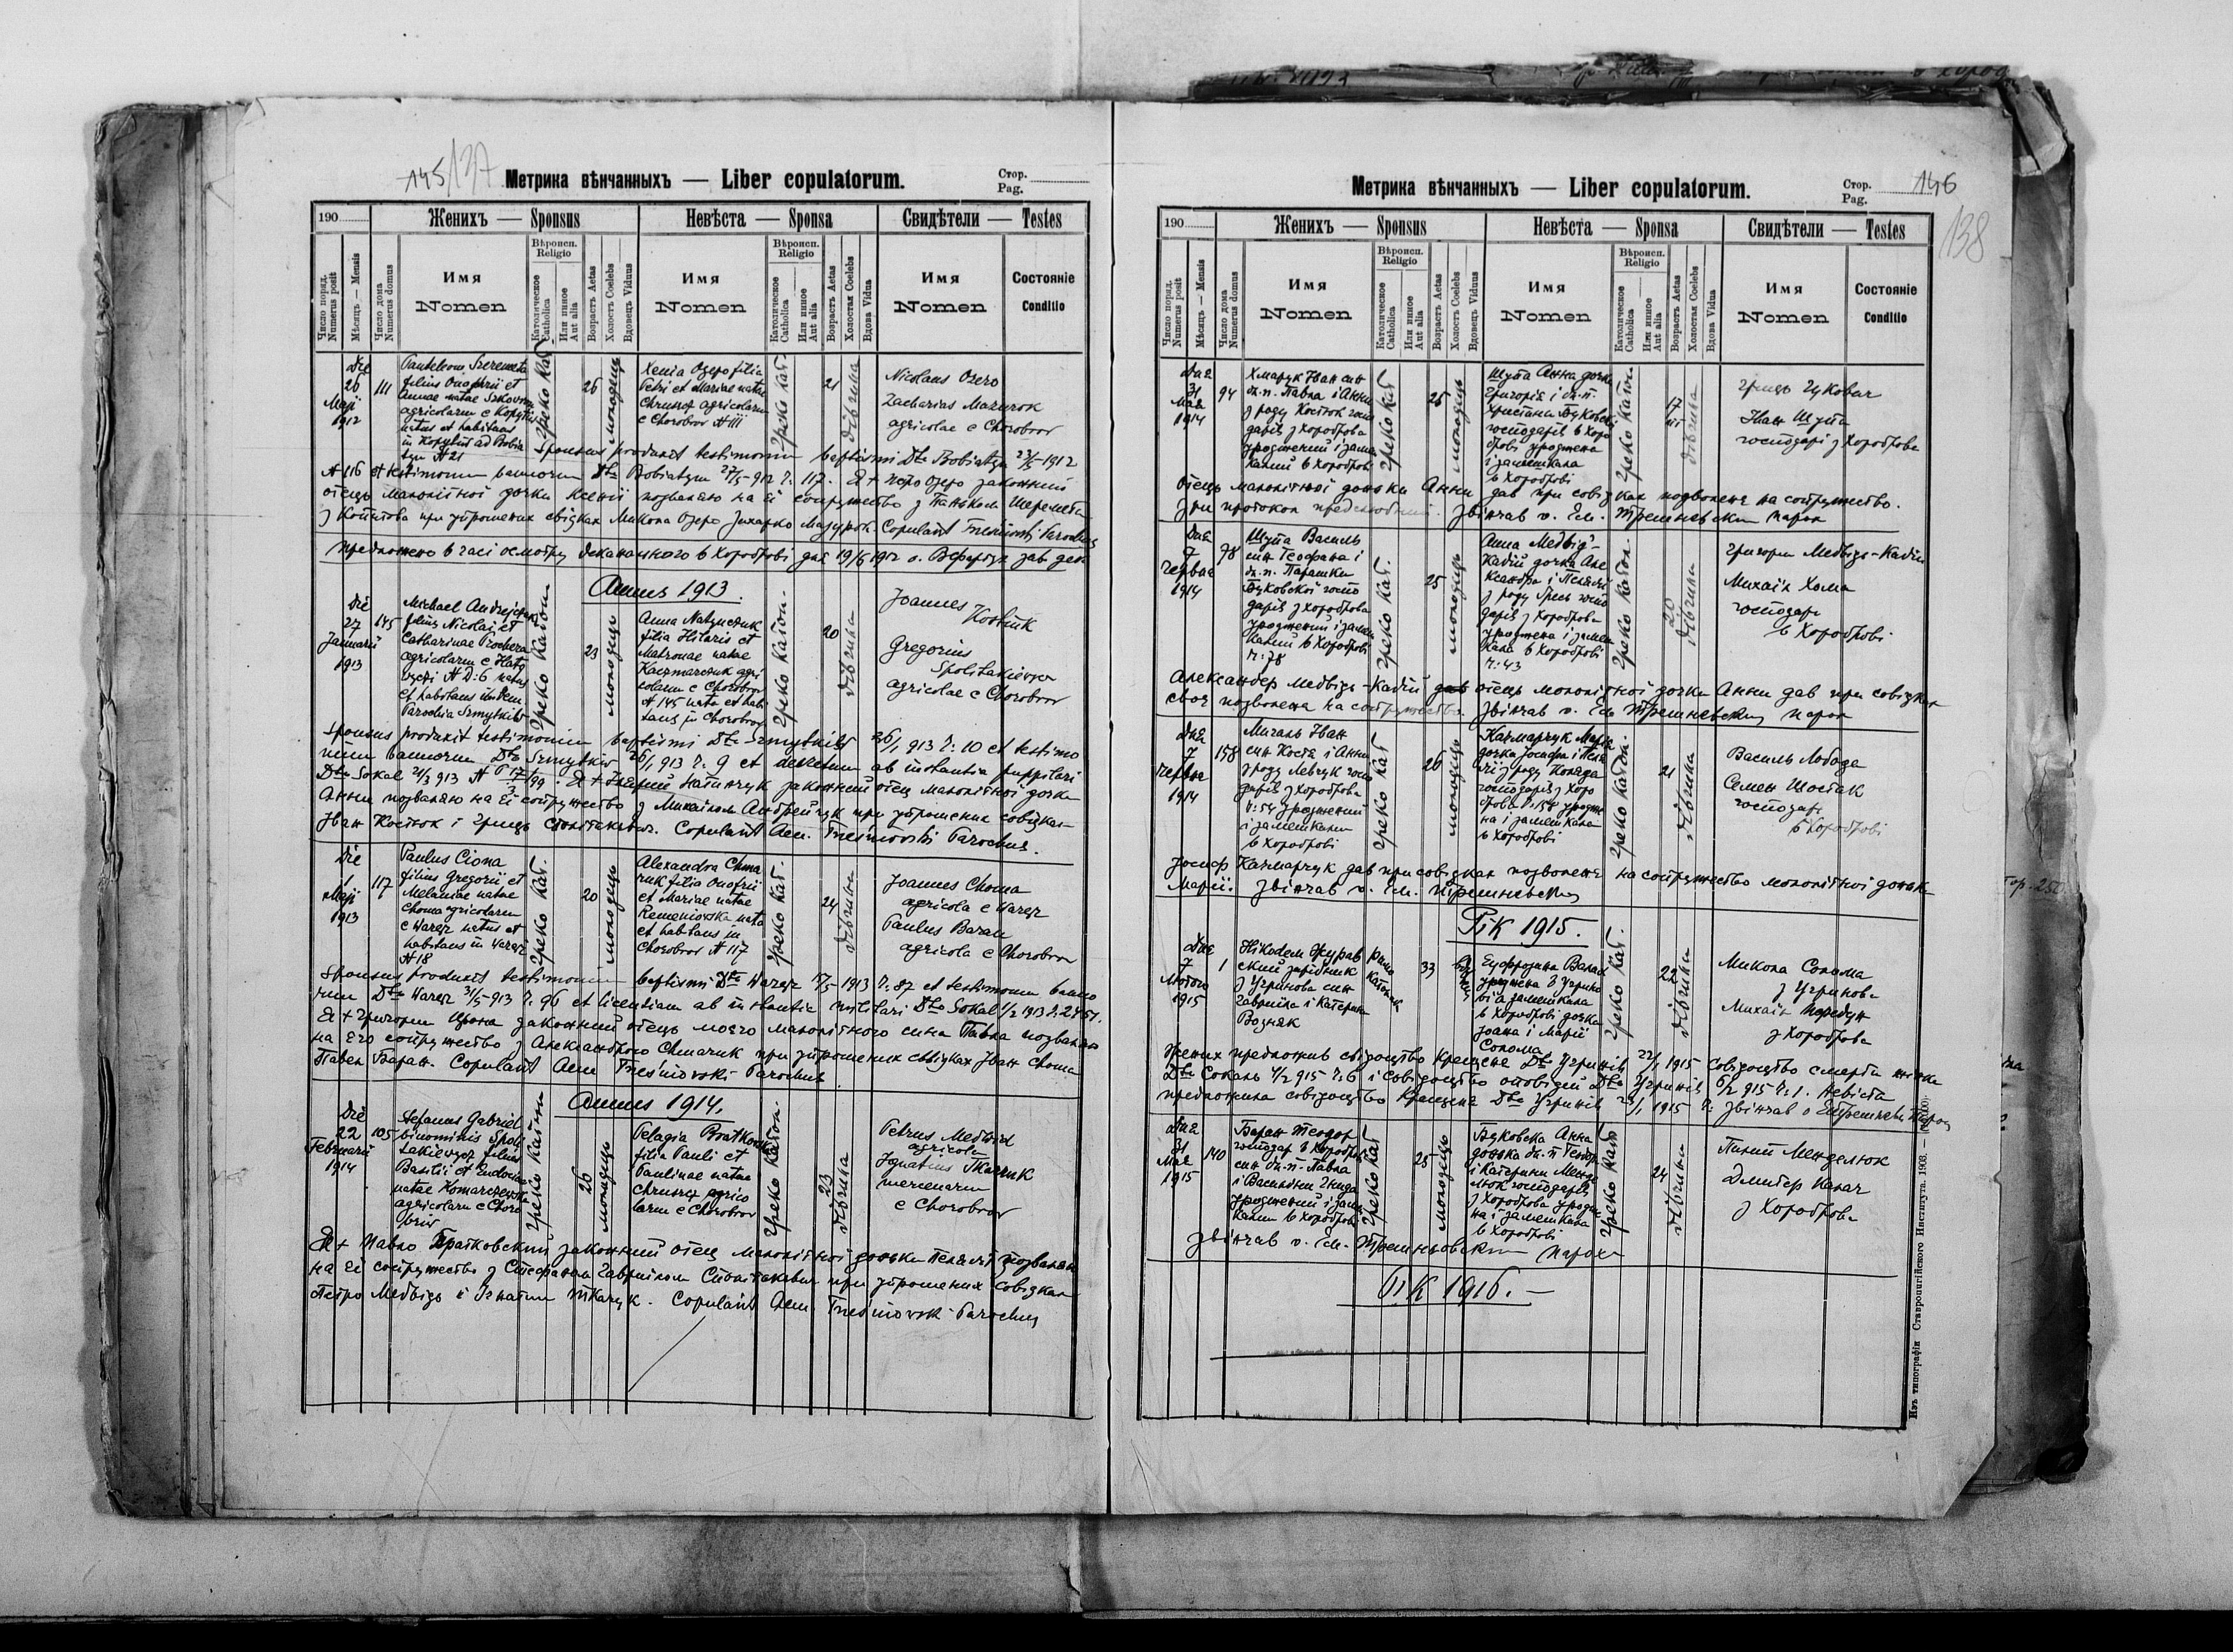 145/137
Метрика вѣнчанныхъ — Liber copulatorum.
Стор.
Pag.
190
Женихъ — Sponsus
Невѣста — Sponsa
Свидѣтели — Testes
Число поряд.
Numerus posit
Мѣсяцъ — Mensis
Число дома
Numerus domus
Имя
Nomen
Вѣроисп.
Religio
Католическое
Catholica
Или инное
Aut alia
Возрастъ Aetas
Холостъ Coelebs
Вдовецъ Viduus
Имя
Nomen
Вѣроисп.
Religio
Католическое
Catholica
Или инное
Aut alia
Возрастъ Aetas
Холостая Coelebs
Вдова Vidua
Имя
Nomen
Состоянiе
Conditio
Die
26
Maji
1912
111
Panteleon Szeremeta
filius Onophrii et
Annae natae
agricolarum e
natus et habitans
in Kopytiw ad Bobia
tyn N 21
греко кат.
26
молодець
Xenia Озеро filia
Petri et Mariae natae
agricolarum
e Chorobrow N 111
греко кат.
21
дівчина
Nicolaus Ozero
Zacharias Mazurok
agricolae e Chorobrow
Sponsus produxit testimonium baptismi Dto Bobiatyn 23/5 1912
N 116 et testimonium bannorum Dto Bobiatyn 27/5 912 Ч. 117. Я + Петро Озеро законний
отець малолітної дочки Ксенії позваляю на єї супружество з Паньком Шеремета
з Копитова при упрошених свідках Микола Озеро Захарко Мазурок. Copulavit Tresniowski Parochus
Предложено в часі осмотру деканального в Хороброві дня 19/6 1912
Annus 1913.
Die
27
Januarii
1913
145
Michael Andrejczuk
filius Nicolai et
Catharinae
agricolarum e
N D: 6 natus
et habitans
Parochia Szmytkiw
греко катол.
23
молодець
Anna
filia Hilaris et
Matronae natae
Kaczmarczuk agri
colarum e Chorobrow
N 145 nata et habi
tans in Chorobrow
греко катол.
20
дівчина
Joannes
Kostiuk
Gregorius
Spolitakiewicz
agricolae e Chorobrow
Sponsus produxit testimonium baptismi Dto Szmytkiw 26/1 913 Ч: 10 et testimo
nium bannorum Dto Szmytkiw 26/1 913 Ч. 9 et decretum ab instantia puppilari
Dto Sokal 21/1 913 законний отец малолітної дочки
Анни позваляю на єї супружество з Михайлом Андрейчук при упрошених совідках
Іван Костюк і Гриць Сполітакевич. Copulavit Aem. Tresniowski Parochus.
Die
1
Maji
1913
117
Paulus Ciona
filius Gregorii et
Melaniae natae
Choma agricolarum
e Waręż natus et
habitans in Waręż
N 18
греко кат.
20
молодець
Alexandra Chma
ruk filia Onofrii
et Mariae natae
Remeniowska nata
et habitans in
Chorobrow N 117
греко кат.
24
дівчина
Joannes Choma
agricola e Waręż
Paulus Baran
agricola e Chorobrow
Sponsus produxit testimonium baptismi Dto Waręż 17/5 1913 Ч. 87 et testimonium banno
rum Dto Waręż 31/5 913 Ч. 96 et licentiam ab instantia militari Dto Sokal
Я + Григорий законний отець моего малолітного сина Павла позваляю
на Єго супружество з Александрою Chmaruk при упрошених свідках Іван Choma
Павел Баран. Copulavit Aem Tresniowski Parochus
Annus 1914.
Die
22
Februarii
1914
105
Stefanus Gabriel
binominis Spoli
takiewicz filius
Basilii et Eudociae
natae Komarczewska
agricolarum e Choro
brów
греко катол.
26
молодець
Pelagia Bratkowska
filia Pauli et
Paulinae natae
agrico
larum e Chorobrow
греко катол.
23
дівчина
Petrus Medwid
agricola
Ignatius Tkaczuk
mercenarius
e Chorobrow
Я + Павло Братковский законний отец малолітної доньки Пелагії позваляю
на єї супружество з Стефаном Гавриілом Сполітакевич при упрошених совідках
Петро Медвідь і Ігнатий Ткачук. Copulavit Aem Tresniowski Parochus
Метрика вѣнчанныхъ — Liber copulatorum.
Стор.
Pag.
146
138
190
Женихъ — Sponsus
Невѣста — Sponsa
Свидѣтели — Testes
Число поряд.
Numerus posit
Мѣсяцъ — Mensis
Число дома
Numerus domus
Имя
Nomen
Вѣроисп.
Religio
Католическое
Catholica
Или инное
Aut alia
Возрастъ Aetas
Холостъ Coelebs
Вдовецъ Viduus
Имя
Nomen
Вѣроисп.
Religio
Католическое
Catholica
Или инное
Aut alia
Возрастъ Aetas
Холостая Coelebs
Вдова Vidua
Имя
Nomen
Состоянiе
Conditio
Дня
31
Мая
1914
94
Хмарук Іван син
бл.п. Павла і Анни
з роду Костюк госпо
дарів з Хороброва
уроджений і заме
каний в Хороброві
греко кат
26
молодець
Шупа Анна дочка
Григорія і бл.п.
Христини Буковскої
господарів в Хоро
брові уроджена
і замешкала
в Хороброві
греко катол.
17
дівчина
Гриць Цуковач
Іван Шупа
господарі з Хороброва
отець малолітної доньки Анни дав при совідках позволенє на супружество.
протокол предслюбний. Звінчав о. Ем. Трешневский парох
Дня
7
Червня
1914
78
Шупа Василь
син Теофана і
бл.п. Парашки
Буковскої госпо
дарів з Хороброва
уроджений і замеш
каний в Хороброві
ч: 78
греко кат.
25
молодець
Анна Медвідь-
Кадій дочка Але
ксандра і Пелагії
з роду госпо
дарів з Хороброва
уроджена і замеш
кала в Хороброві
ч: 43
греко катол.
20
дівчина
Григорий Медвідь-Кадій
Михаіл Хома
господарі
в Хороброві
Александер Медвідь-Кадій отець малолітної дочки Анни дав при совідках
своє позволенє на супружество. Звінчав о. Ем Трешневский парох
Дня
7
Червня
1914
158
Мигаль Іван
син Костя і Анни
з роду Левчук госпо
дарів з Хороброва
ч: 54 уроджений
і замешкалий
в Хороброві
греко кат
26
молодець
Качмарчук Марія
дочка Йосифа і Пела
гії з роду Коляда
господарів з Хоро
брова уродже
на і замешкала
в Хороброві
греко катол.
21
дівчина
Василь Лобода
Семен Шостак
господарі
в Хороброві
Йосиф Качмарчук дав при совідках позволенє на супружество малолітної доньки
Марії. Звінчав о. Ем. Трешневский
Рік 1915.
Дня
7
Лютого
1915
1
Нікодем Журав
ский зарібник
з Угринова син
Гавриіла і Катерини
Возняк
римо
католик
33
вдовець
Евфрозина
уроджена в Угрино
ві а замешкала
в Хороброві дочка
Івана і Марії
Солома
греко кат.
22
дівчина
Микола Солома
з Угринова
Михаіл
з Хороброва
Жених предложив свідоцтво крещеня Dto Угринів 22/1 1915 совідоцтво смерти жінки
Dto Сокаль 4/2 915 Ч: 6 і совідоцтво оповідей Dto Угринів 6/2 915 Ч: 1. Невіста
предложила совідоцтво крещеня Dto Угринів 23/1 1915 Звінчав о Ем Трешневский Парох
Дня
31
Мая
1915
140
Баран Теодор
господар в Хороброві
син бл.п. Павла
і Василини Гнида
уроджений і замеш
калий в Хороброві
греко кат
25
молодець
Буковска Анна
донька бл.п Теодора
і Катерини Менде
люк господарів
з Хороброва уродже
на і замешкала
в Хороброві
греко кат
24
дівчина
Пилип Менделюк
Дмитер Калач
з Хороброва
Звінчав о. Ем. Трешньовский парох
Рік 1916. —
Изъ типографiи Ставропигiйского Института. 1908.